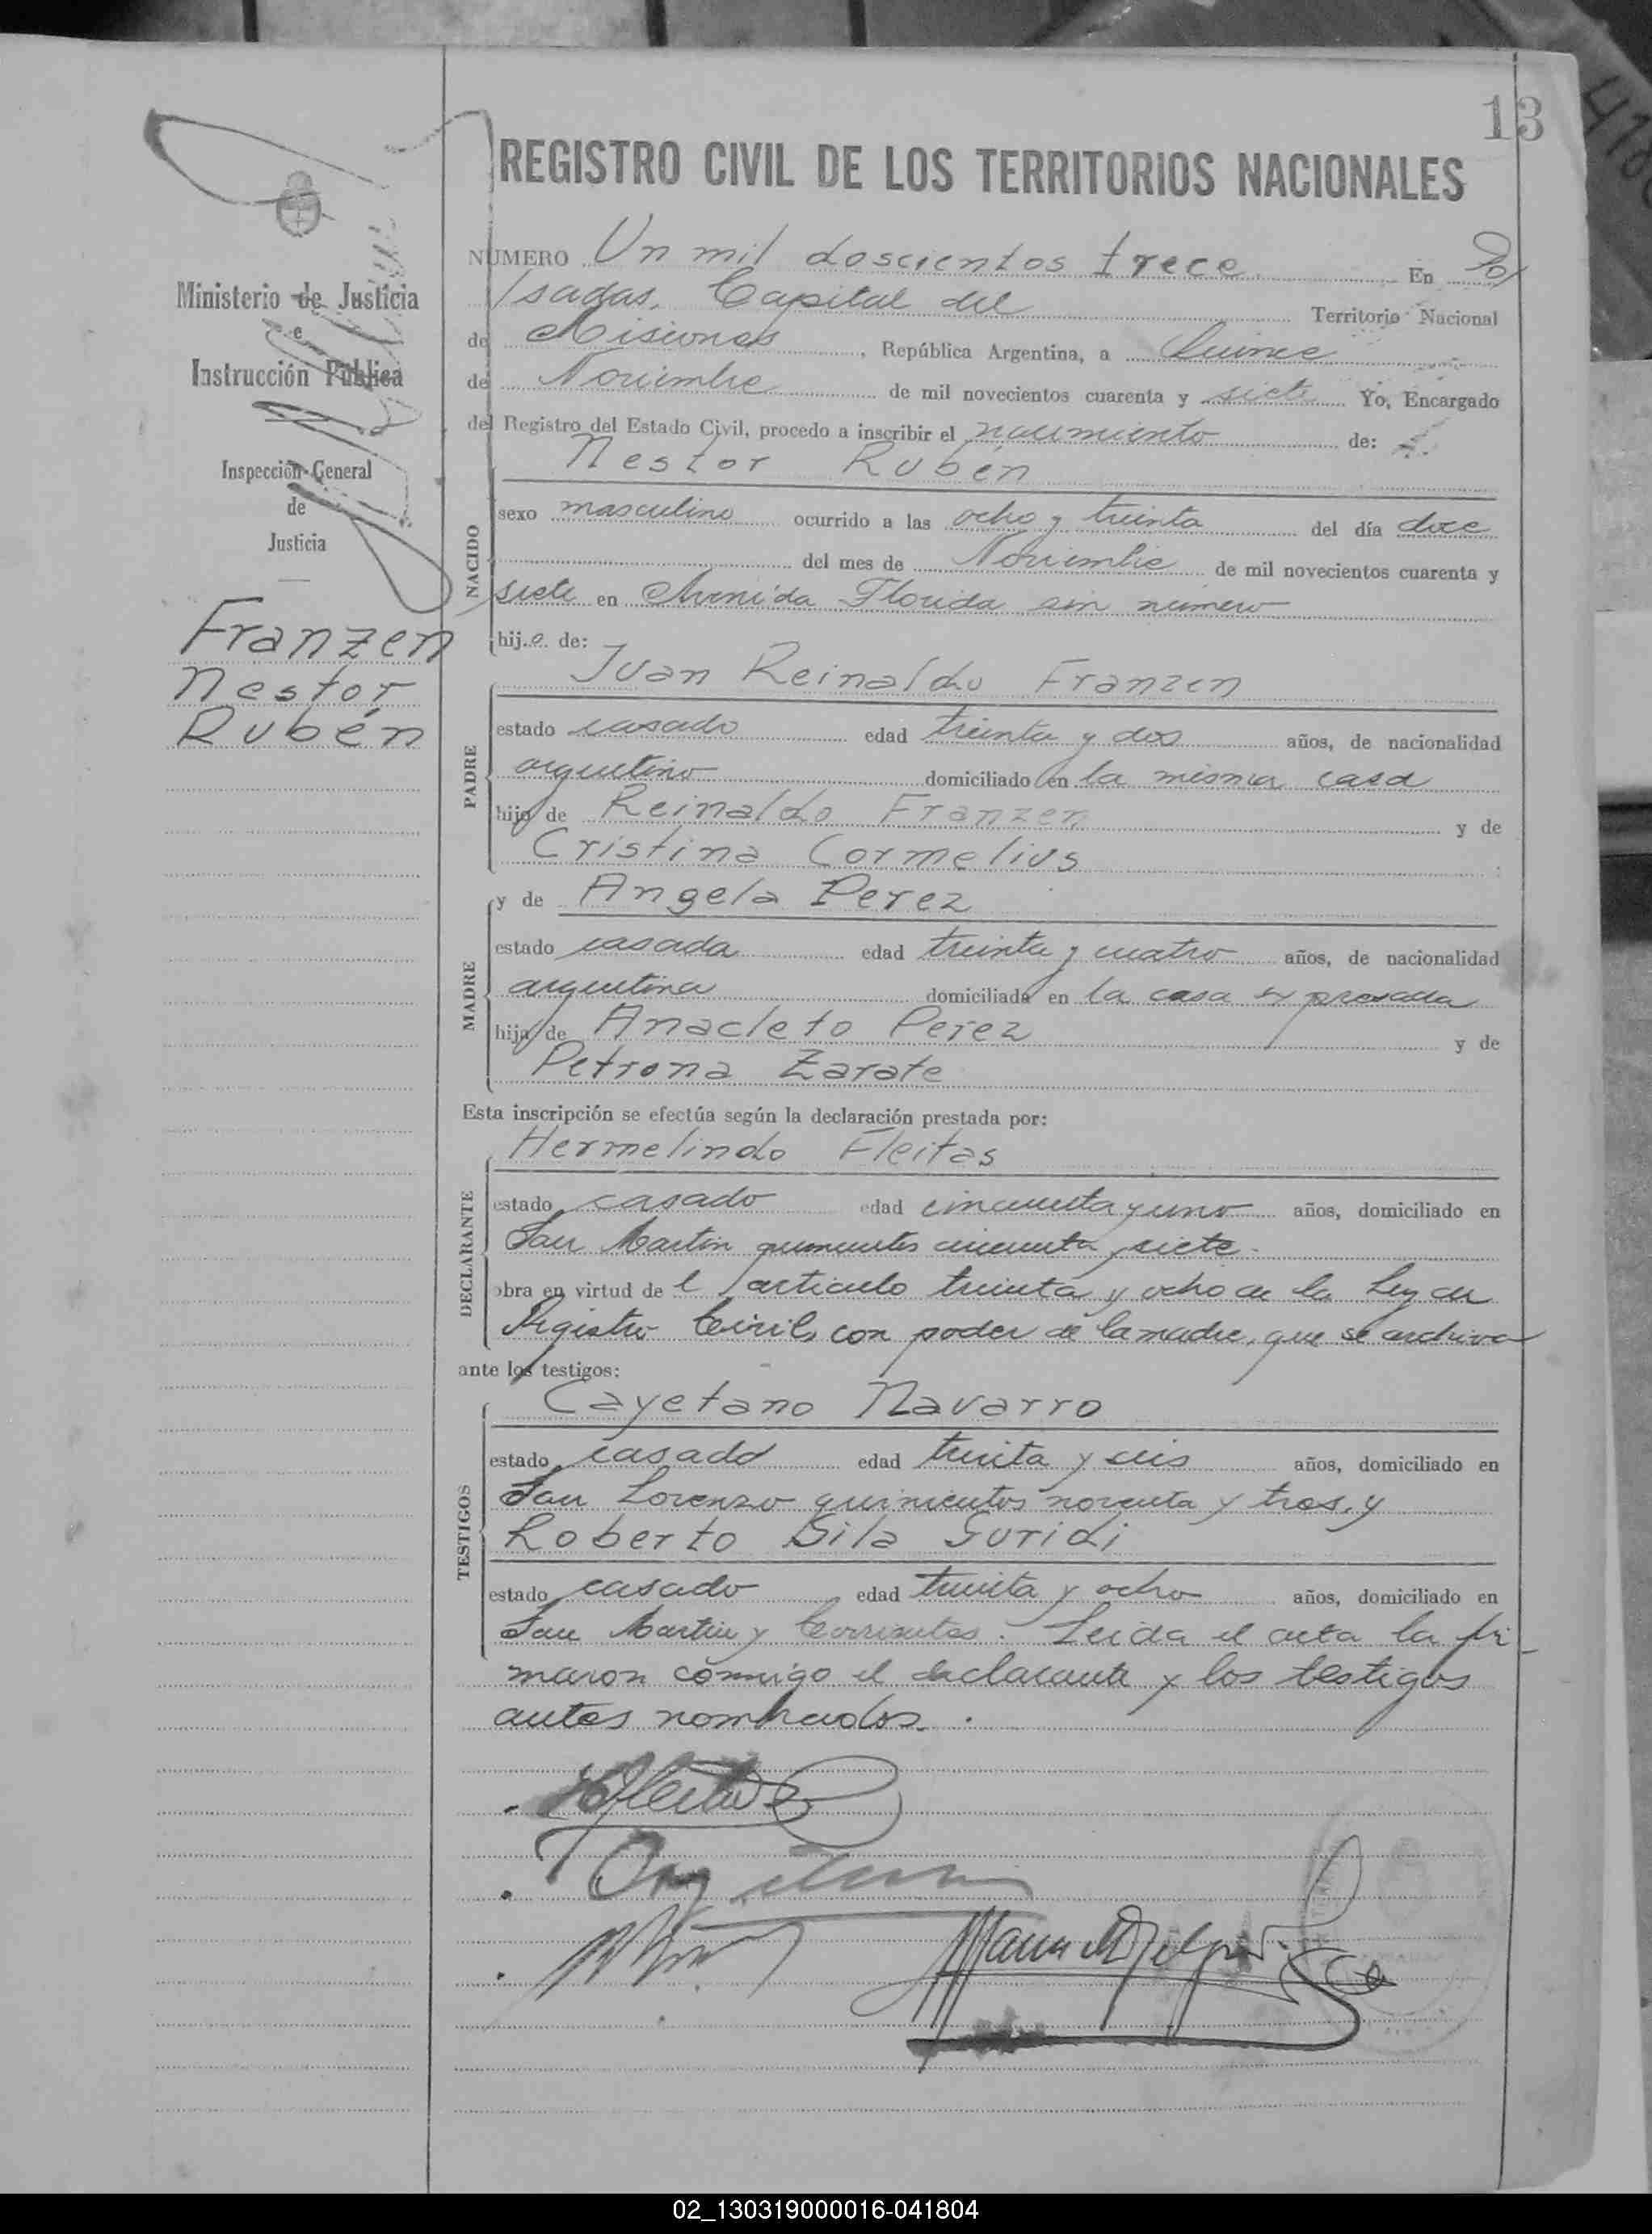 13
REGISTRO CIVIL DE LOS TERRITORIOS NACIONALES
Ministerio de Justicia
e
Instrucción Pública
Inspección General
de
Justicia
Franzen
Nestor
Rubén
NUMERO Un mil doscientos trece En Po/
/sadas, Capital del Territorio Nacional
de Misiones, República Argentina, a Quince
de Noviembre de mil novecientos cuarenta y siete Yo, Encargado
del Registro del Estado Civil, procedo a inscribir el nacimiento de:
Nestor Rubén
NACIDO
sexo masculino ocurrido a las ocho y treinta del día doce
del mes de Noviembre de mil novecientos cuarenta y
siete en Avenida Florida sin número
hij.o. de:
Juan Reinaldo Franzen
PADRE
estado casado edad treinta y dos años, de nacionalidad
argentino domiciliado en la misma casa
hijo de Reinaldo Franzen y de
Cristina Cormelius
y de Angela Perez
MADRE
estado casada edad treinta y cuatro años, de nacionalidad
argentina domiciliada en la casa expresada
hija de Anacleto Perez y de
Petrona Zarate
Esta inscripción se efectúa según la declaración prestada por:
Hermelindo Fleitas
DECLARANTE
estado casado edad cincuenta y uno años, domiciliado en
San Martin quinientos cincuenta y siete.
obra en virtud de l articulo treinta y ocho de la Ley de
Registro Civil, con poder de la madre, que se archiva
ante los testigos:
Cayetano Navarro
TESTIGOS
estado casado edad treita y seis años, domiciliado en
San Lorenzo quinientos noventa y tres, y
Roberto Dila Guridi
estado casado edad treita y ocho años, domiciliado en
San Martin y Corrientes. Leida el acta la fir-
maron conmigo el declarante y los testigos
antes nombrados.
02_130319000016-041804